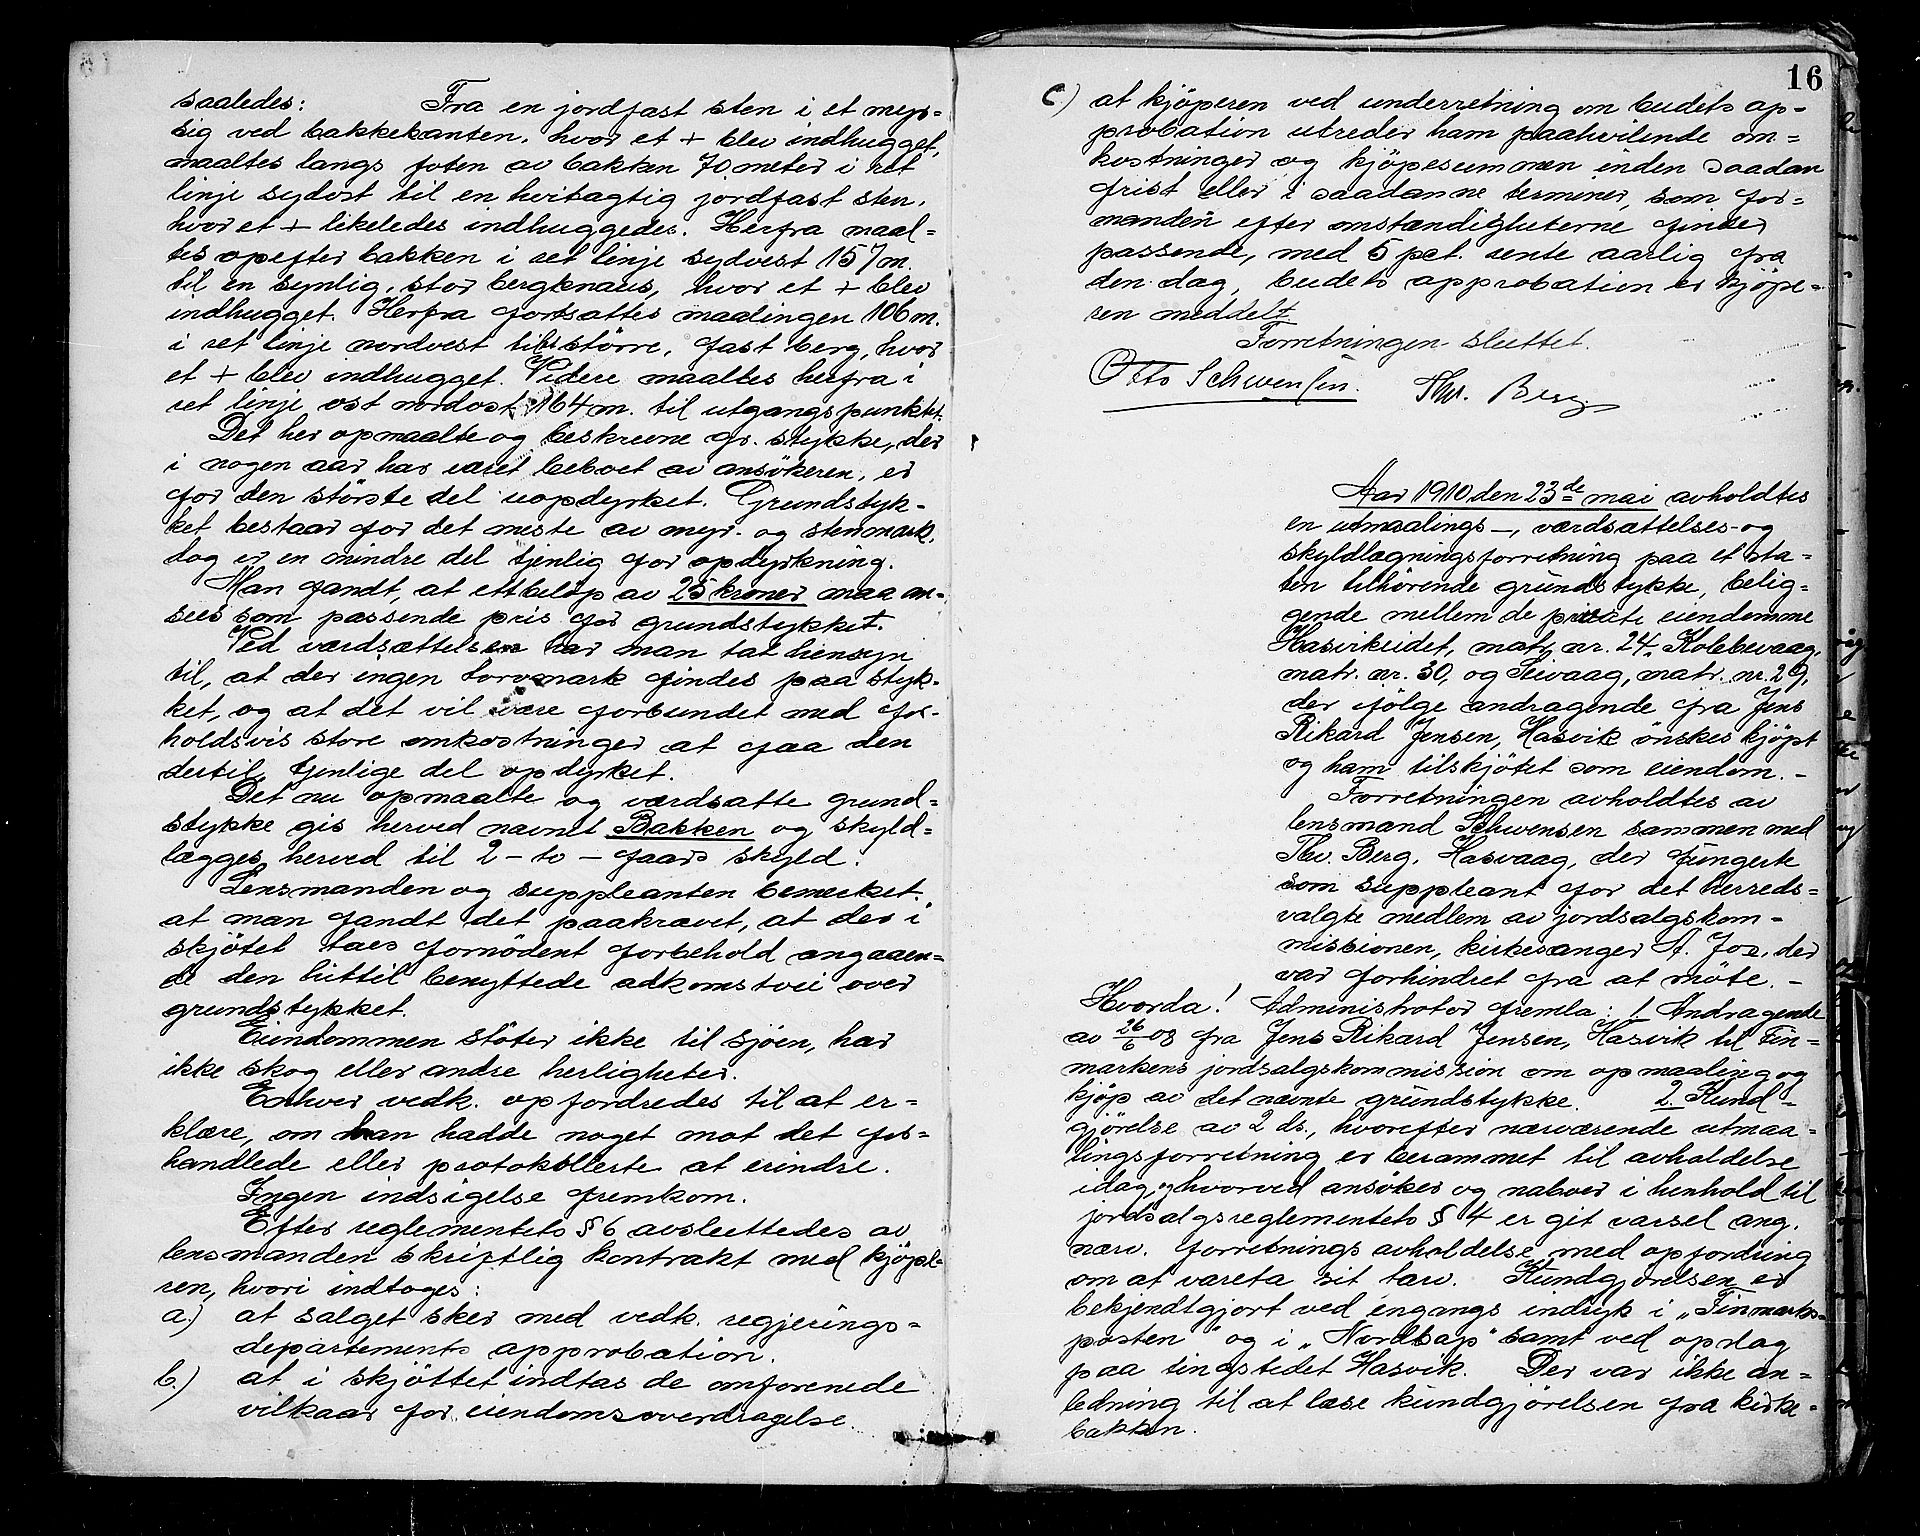 saaledes: Fra en jordfast sten i et myr-
sig ved bakkekanten, hvor et + blev indhugget,
maaltes langs foten av bakken 70 meter i ret
linje sydost til en hvitagtig jordfast sten,
hvor et + likeledes indhuggedes. Herfra maal-
tes opefter bakken i ret linje sydvest 157 m.
til en synlig, stor bergknaus, hvor et + blev
indhugget. Herfra fortsattes maalingen 106 m.
i ret linje nordvest til större, fast berg, hvor
et + blev indhugget. Videre maaltes herfra i
ret linje ost nordost 164 m. til utgangspunktet.
Det her opmaalte og beskrevne gr. stykke, der
i nogen aar har været beboet av ansökeren, er
for den störste del uopdyrket. Grundstyk-
ket bestaar for det meste av myr- og stenmark,
dog er en mindre del tjenlig for opdyrkning.
Man fandt, at ett beløp av 25 kroner maa an-
sees som passende pris for grundstykket.
Ved værdsættelsen har man tat hensyn
til, at der ingen torvmark findes paa styk-
ket, og at det vil være forbundet med for-
holdsvis store omkostninger at faa den
dertil tjenlige del opdyrket.
Det nu opmaalte og værdsatte grund-
stykke gis herved navnet Bakken og skyld-
lægges herved til 2 - to - jaars skyld.
Lensmanden og suppleanten bemerket,
at man fandt det paakrævet, at der i
skjötet taes fornödent forbehold angaaen-
de den hittil benyttede adkomstvei over
grundstykket.
Eiendommen stöter ikke til sjöen, har
ikke skog eller andre herligheter.
Enhver vedk. opfordredes til at er-
klære, om han hadde noget mot det for-
handlede eller protokollerte at erindre.
Ingen indsigelse fremkom.
Efter reglementets § 6 avsluttedes av
lensmanden skriftlig kontrakt med kjöpe-
ren, hvori indtoges:
a.) at salget sker med vedk. regjerings-
departements approbation.
b.) at i skjöttet indtas de omforenede
vilkaar for eiendomsoverdragelse.
16
c.) at kjöperen ved underretning om budets ap-
probation utreder ham paahvilende om-
kostninger og kjöpesummen inden saadan
frist eller i saadanne terminer, som for-
manden efter omstændigheterne finder
passende, med 5 pct. rente aarlig fra
den dag, budets approbation er kjöpe-
ren meddelt.
Forretningen sluttet.
Otto Schwensen. Thv. Berg
Aar 1910 den 23de mai avholdtes
en utmaalings-, værdsættelses- og
skyldlægningsforretning paa et sta-
ten tilhörende grundstykke, belig-
gende mellem de private eiendomme
Hasvikeidet, matr. nr. 24, Kolbevaag,
matr. nr. 30, og Seivaag, matr. nr. 29,
der ifölge andragende fra Jens
Rikard Jensen, Hasvik önskes kjöpt
og ham tilskjötet som eiendom. -
Forretningen avholdtes av
lensmand Schwensen sammen med
Thv. Berg, Hasvaag, der fungerte
som suppleant for det herreds-
valgte medlem av jordsalgskom-
missionen, kirkesanger A. Joe, der
var forhindret fra at möte. -
Hvorda! Administrator fremla: 1. Andragende
av 26/6 08 fra Jens Rikard Jensen, Hasvik til Fin-
markens jordsalgskommission om opmaaling og
kjöp av det nævnte grundstykke. 2. Kund-
gjörelse av 2 ds., hvorefter nærværende utmaa-
lingsforretning er berammet til avholdelse
idag, og hvorved ansöker og naboer i henhold til
jordsalgsreglementets § 4 er git varsel ang.
nærv. forretnings avholdelse med opfordring
om at vareta sit tarv. Kundgjörelsen er
bekjendtgjort ved engangs indryk i „Finmarks-
posten" og i „Nordkap" samt ved opslag
paa tingstedet Hasvik. Der var ikke an-
ledning til at læse kundgjörelsen fra kirke-
bakken.